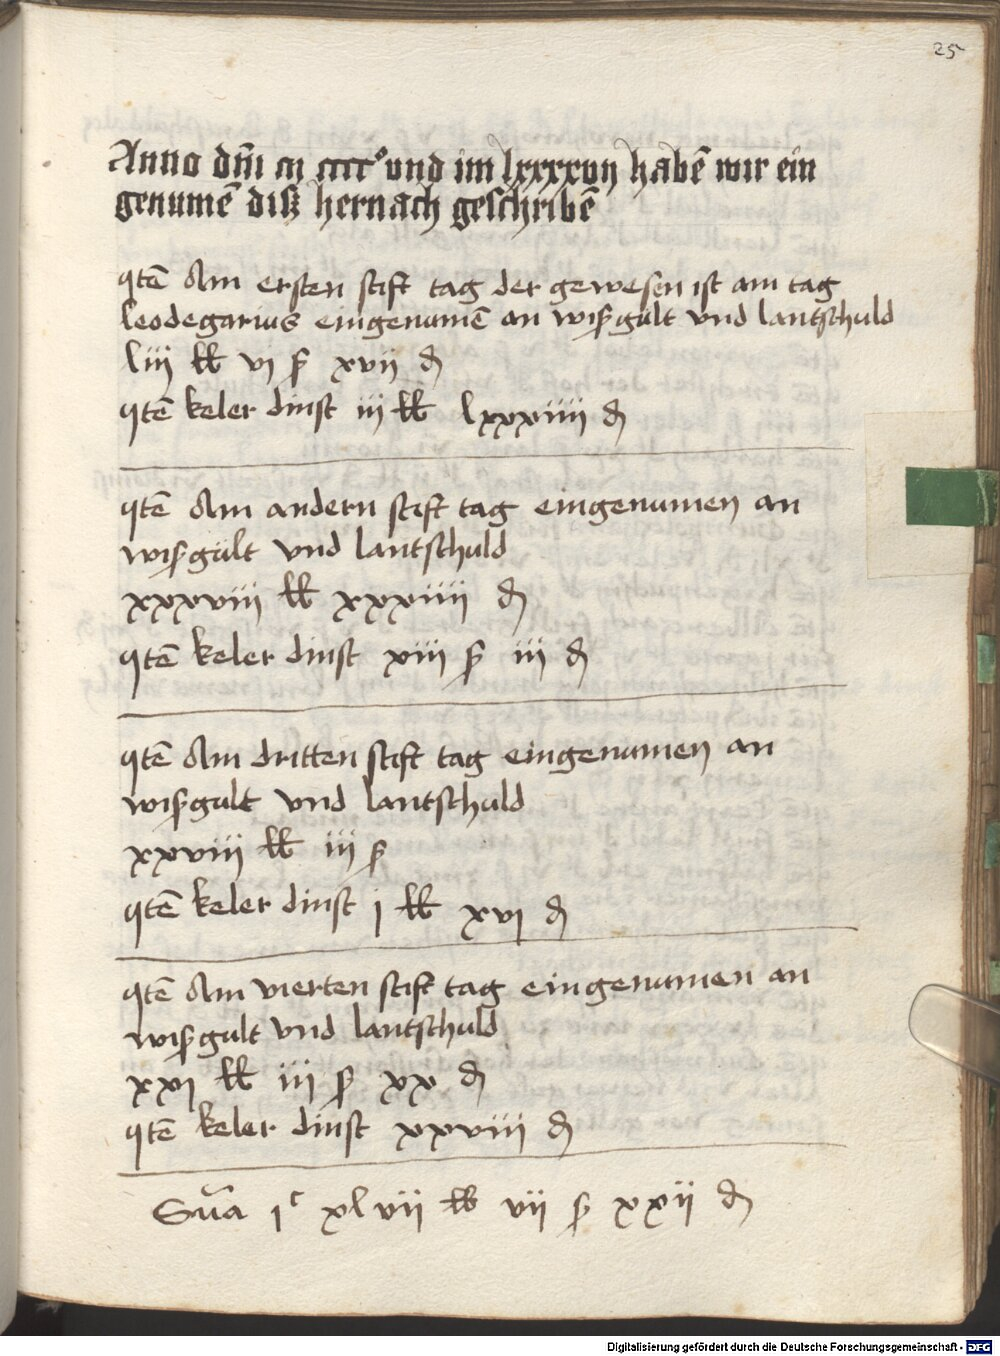 25
Anno dm̄ m ccccᵒ und im lxxxxvij habē wir ein
genumē disz hernach geschribē
Itē Am ersten stift tag der gewesen ist am tag
leodegarius eingenumē an wiſsgult vnd lantschuld
liij ℔ vj ẜ xvij ₰
Itē keler dinst iij ℔ lxxxiiij ₰
Itē Am andern stift tag eingenumen an
wiſsgült vnd lantschuld
xxxviij ℔ xxxiiij ₰
Itē keler dinst xiij ẜ iij ₰
Itē Am dritten stift tag eingenumen an
wiſsgult vnd lantschuld
xxviij ℔ iij ẜ
Itē keler dinst j ℔ xvj ₰
Itē Am vierten stift tag eingenumen an
wiſsgult vnd lantschuld
xxvj ℔ iij ẜ xx ₰
Itē keler dinst xxviij ₰
Sūa jᶜ xlvij ℔ vij ẜ xxij ₰
Digitalisierung gefördert durch die Deutsche Forschungsgemeinschaft - DFG